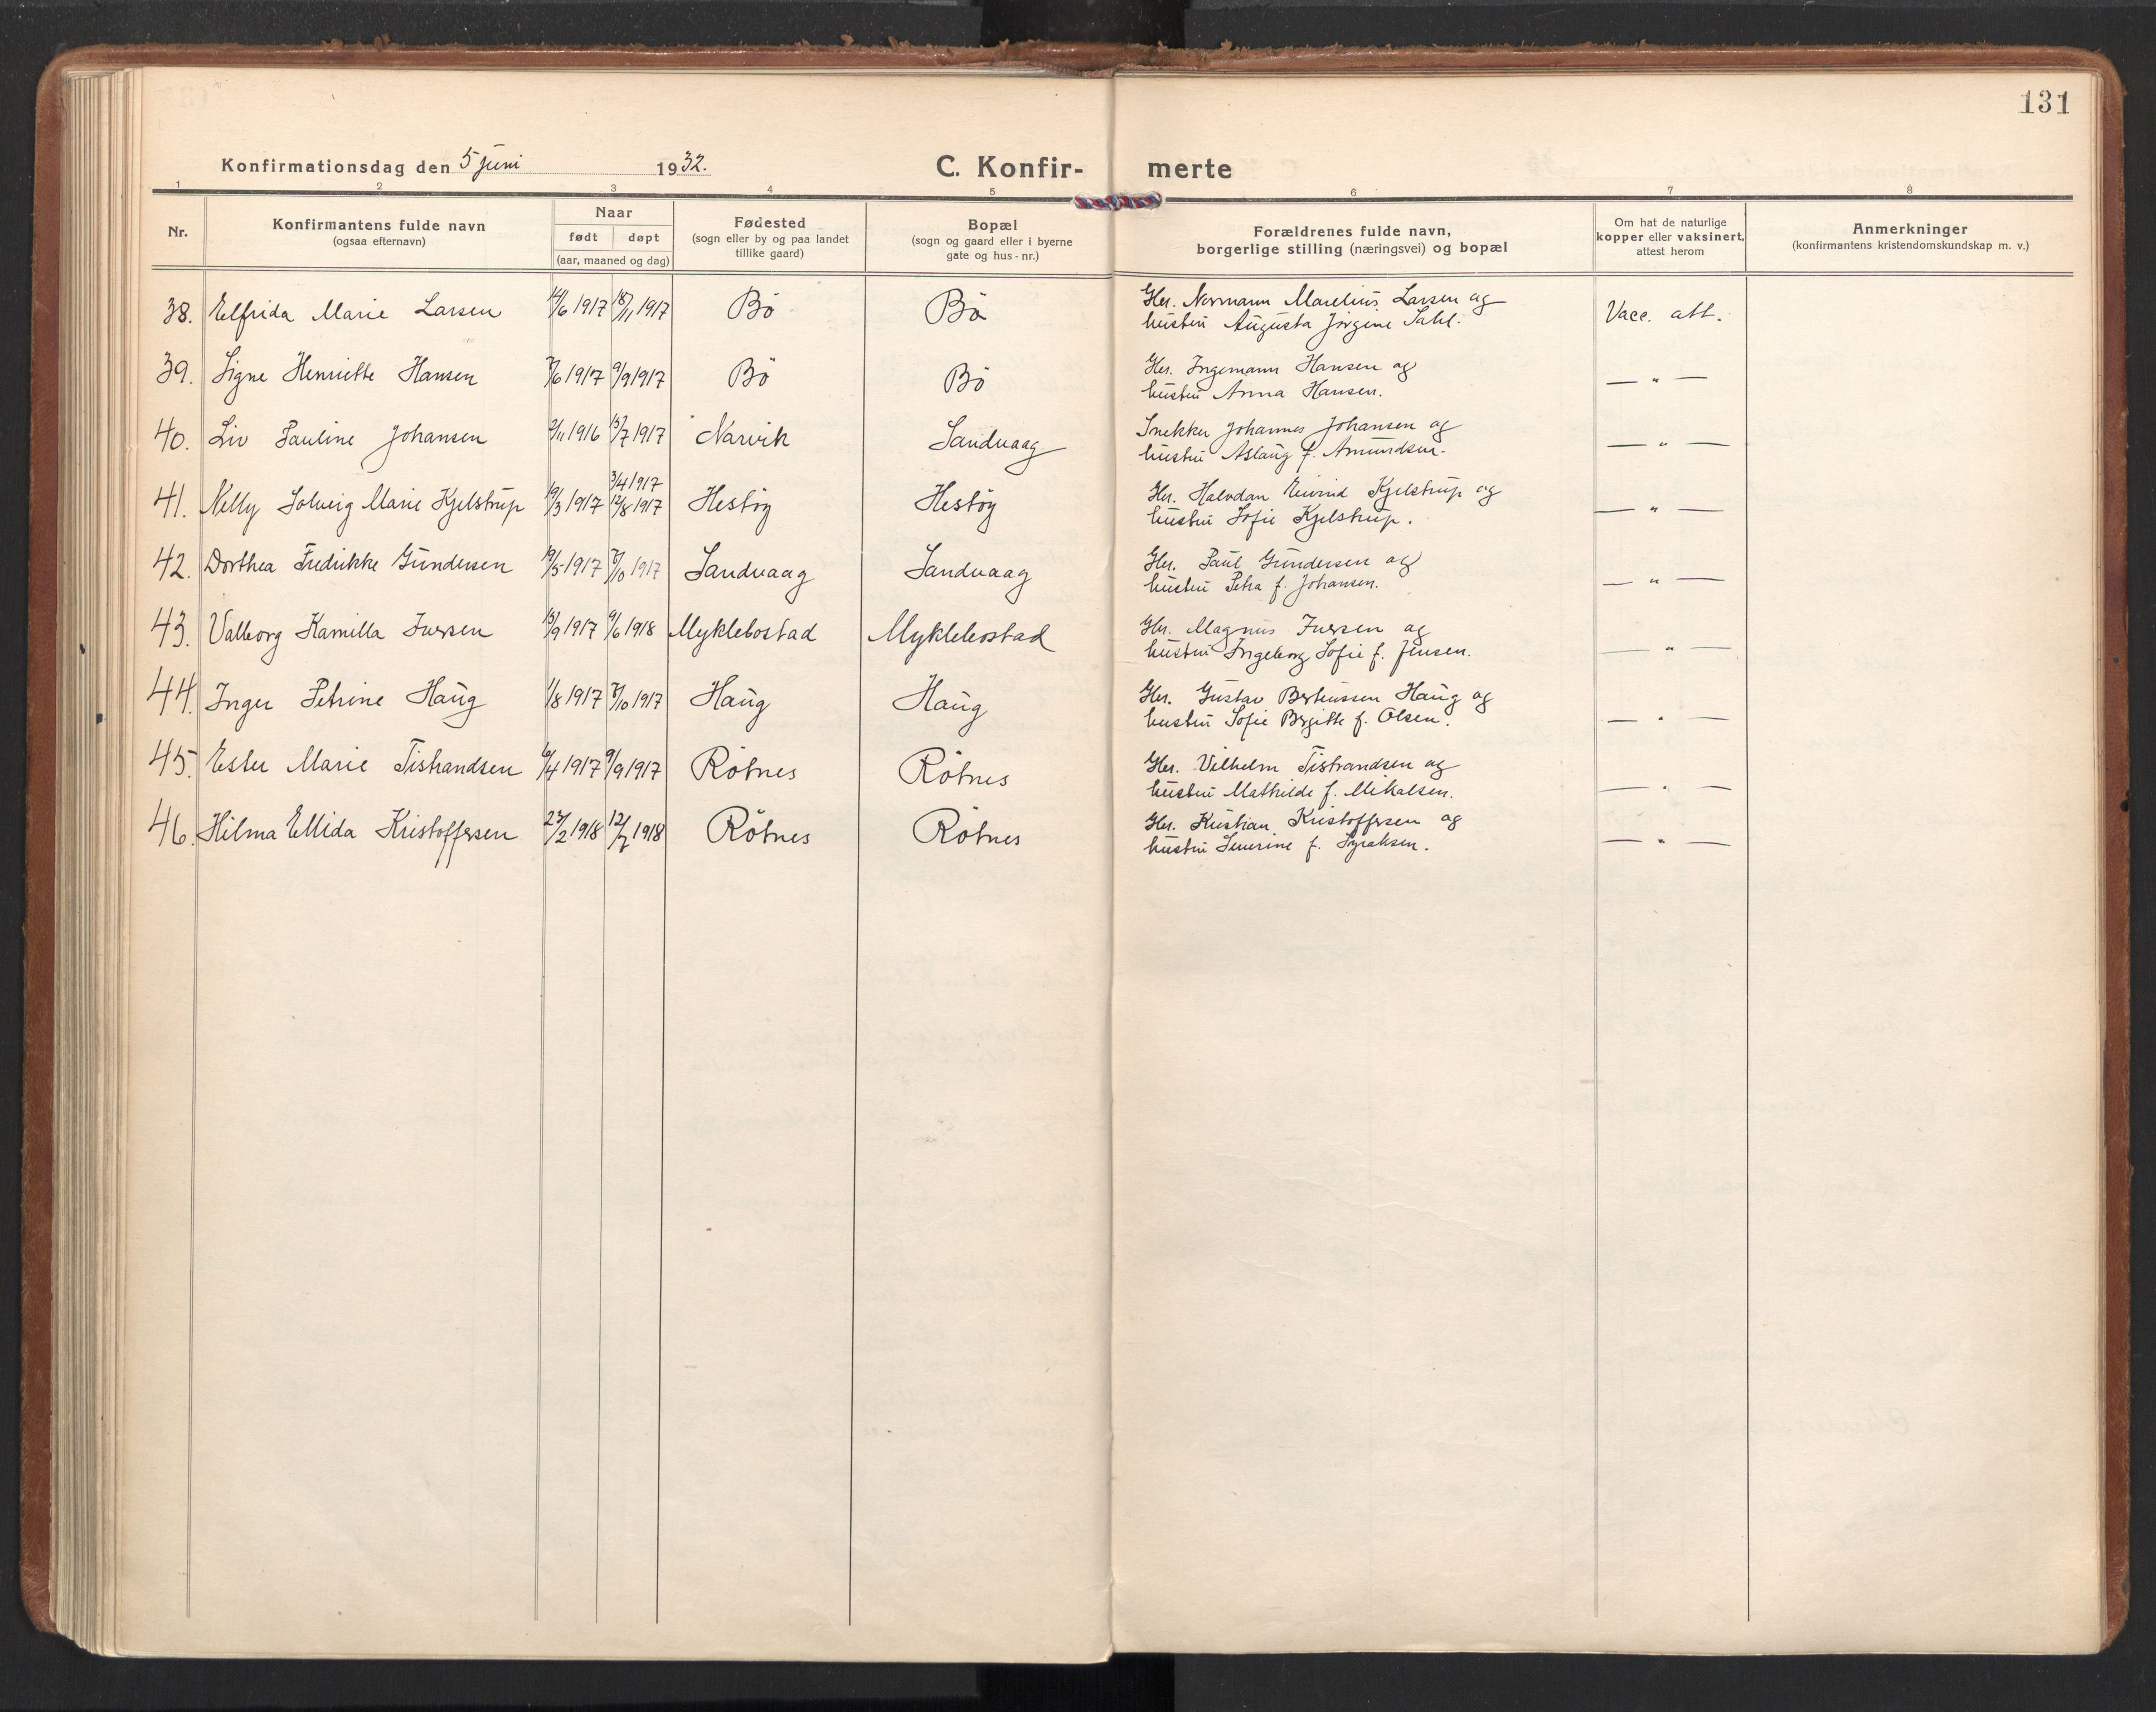 131
Konfirmationsdag den 5 juni 1932. C. Konfir- merte
1 2 3 4 5 6 7 8
Nr. Konfirmantens fulde navn (ogsaa efternavn) Naar født døpt (aar, maaned og dag) Fødested (sogn eller by og paa landet tillike gaard) Bopæl (sogn og gaard eller i byerne gate og hus-nr.) Forældrenes fulde navn, borgerlige stilling (næringsvei) og bopæl Om hat de naturlige kopper eller vaksinert, attest herom Anmerkninger (konfirmantens kristendomskundskap m. v.)
38. Elfrida Marie Larsen 14/6 1917 18/11 1917 Bö Bö Gbr. Normann Marelius Larsen og
hustru Augusta Jörgine Dahl. Vacc. att.
39. Signe Henriette Hansen 7/6 1917 9/9 1917 Bö Bö Gbr. Ingemann Hansen og
hustru Anna Hansen. — " —
40. Liv Pauline Johansen 2/11 1916 15/7 1917 Narvik Sandvaag Snekker Johannes Johansen og
hustru Aslaug f. Amundsen. — " —
3/4 1917
41. Nelly Solveig Marie Kjelstrup 19/3 1917 12/8 1917 Hestöy Hestöy Gbr. Halvdan Eivind Kjelstrup og
hustru Sofie Kjelstrup. — " —
42. Dorthea Fredrikke Gundersen 19/5 1917 7/10 1917 Sandvaag Sandvaag Gbr. Paul Gundersen og
hustru Petra f. Johansen. — " —
43. Valborg Kamilla Iversen 13/9 1917 9/6 1918 Myklebostad Myklebostad Gbr. Magnus Iversen og
hustru Ingeborg Sofie f. Jensen. — " —
44. Inger Petrine Haug 1/8 1917 7/10 1917 Haug Haug Gbr. Gustav Berteussen Haug og
hustru Sofie Bergitte f. Olsen. — " —
45. Ester Marie Tistrandsen 6/4 1917 9/9 1917 Rötnes Rötnes Gbr. Vilhelm Tistrandsen og
hustru Mathilde f. Mikalsen. — " —
46. Hilma Ellida Kristoffersen 23/2 1918 12/7 1918 Rötnes Rötnes Gbr. Kristian Kristoffersen og
hustru Severine f. Syraksen. — " —